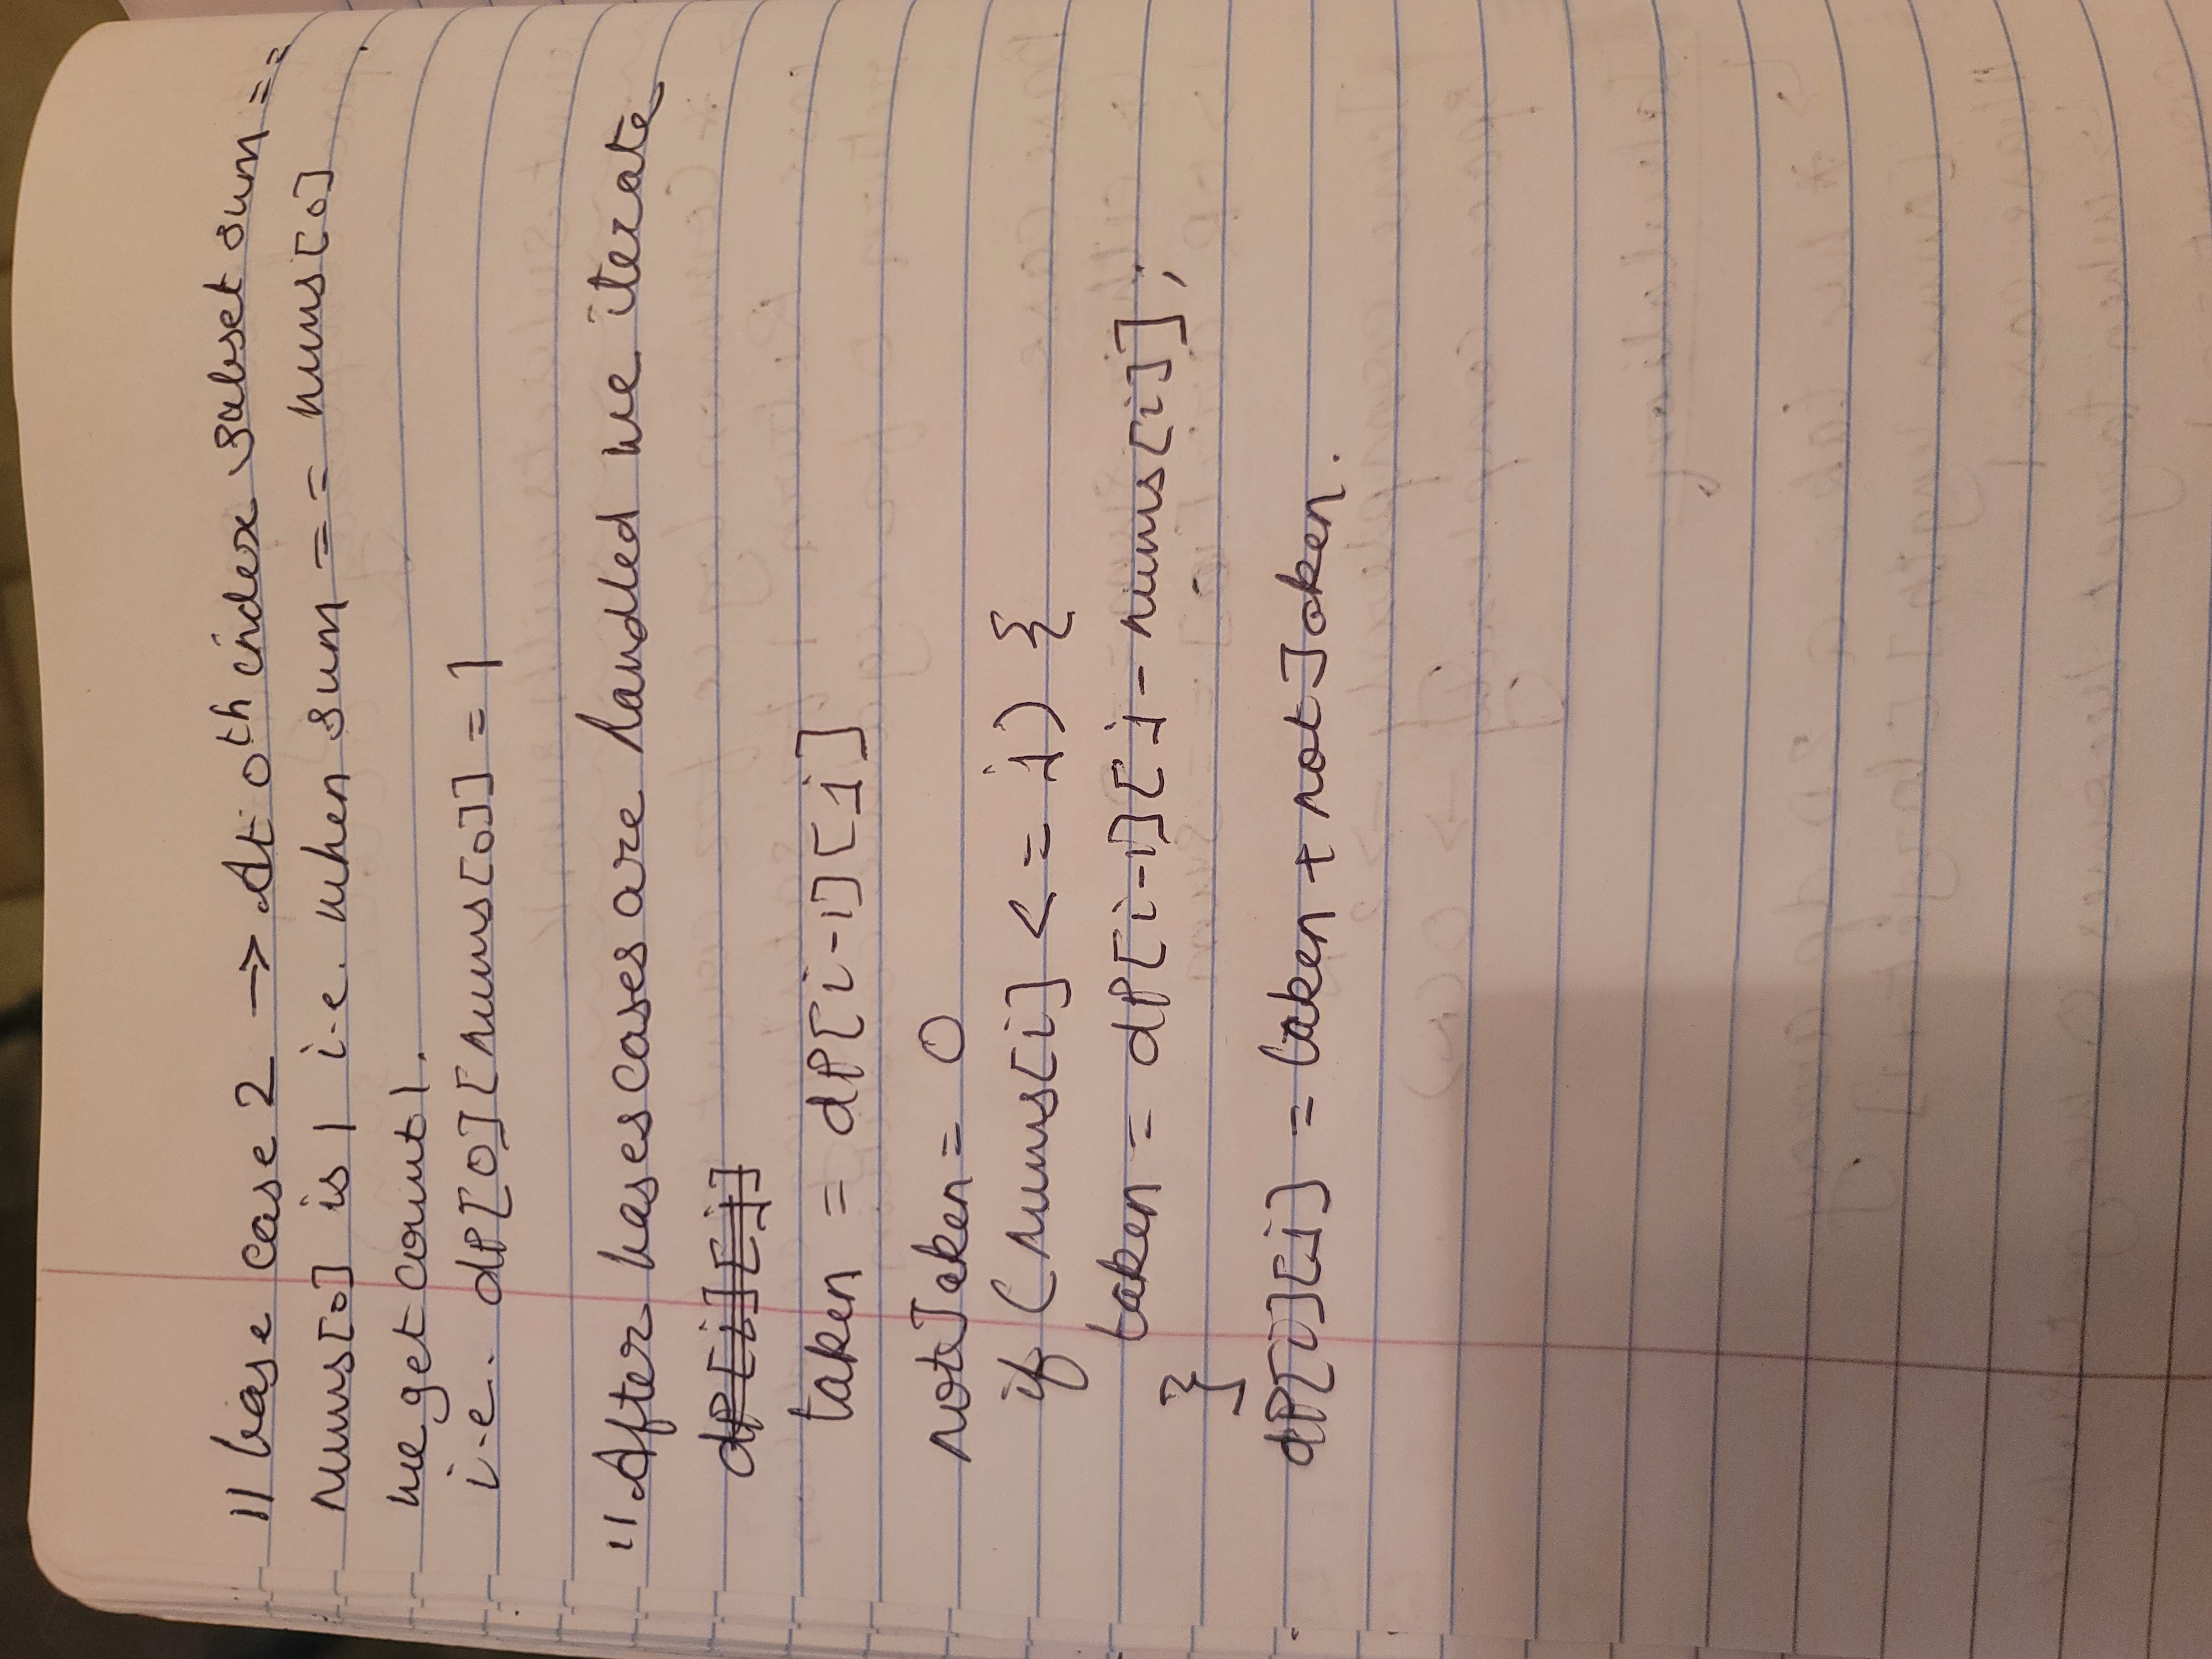 // base case 2 → At 0th index subset sum ==
nums[0] is 1 i.e. when sum == nums[0]
we get count 1.
i.e. dp[0][nums[0]] = 1
// After bases cases are handled we iterate
dp[i][j]
taken = dp[i-1][j]
notTaken = 0
if (nums[i] <= j) {
taken = dp[i-1][j - nums[i]];
}
dp[i][j] = taken + notTaken.